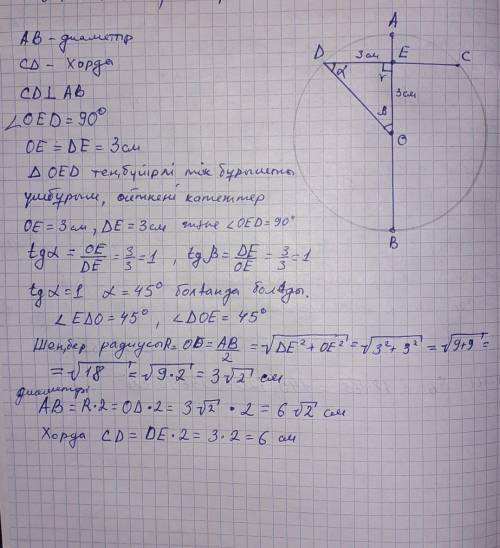 AB - диаметр
CD - Хорда
CD⊥AB
∠OED = 90°
OE = DE = 3 см
Δ OED тең бүйірлі тік бұрышты
үшбұрыш, өйткені катеттер
OE = 3 см, DE = 3 см және ∠OED = 90°
tgα = OE/DE = 3/3 = 1, tgβ = DE/OE = 3/3 = 1
tgα = 1 α = 45° болғанда болады.
∠EDO = 45°, ∠DOE = 45°
Шеңбер радиусы R = OD = AB/2 = √DE² + OE² = √3² + 3² = √9+9 =
= √18 = √9·2 = 3√2 см
диаметрі
AB = R·2 = OD·2 = 3√2 · 2 = 6√2 см
Хорда CD = DE·2 = 3·2 = 6 см
A
D 3 см E C
α r
3 см
β
O
B